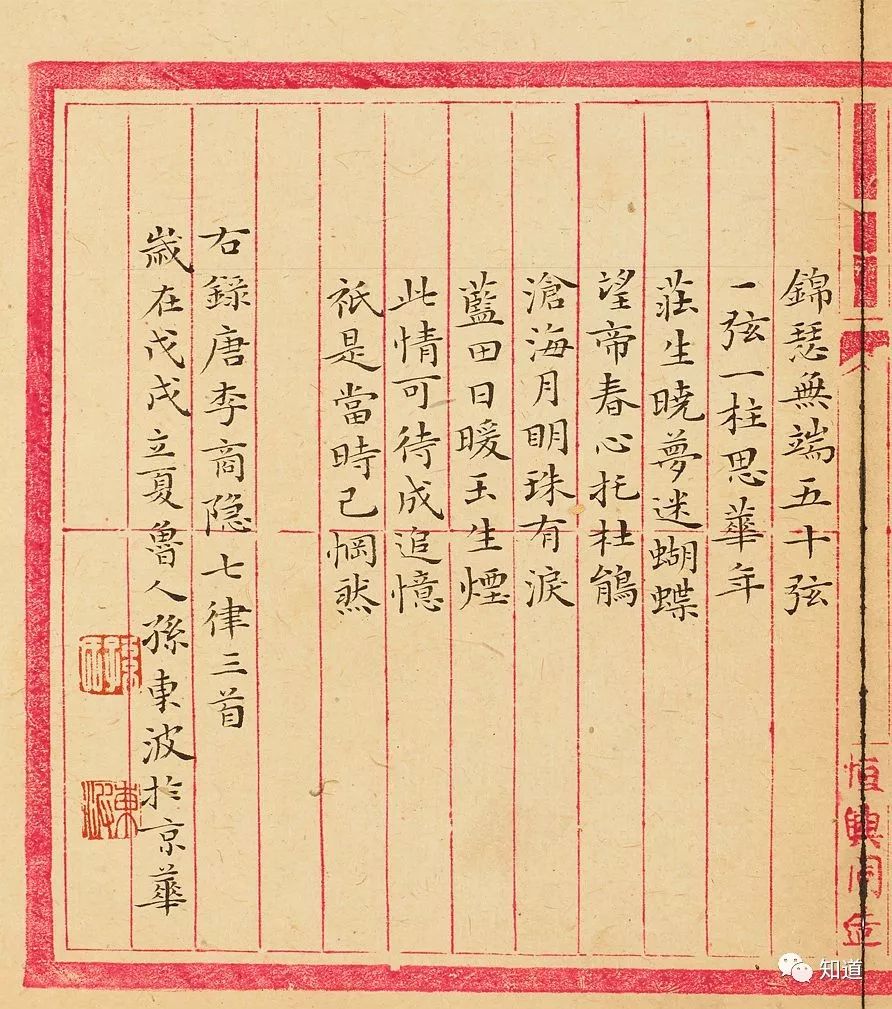 錦瑟無端五十弦
一弦一柱思華年
莊生曉夢迷蝴蝶
望帝春心托杜鵑
滄海月明珠有淚
藍田日暖玉生煙
此情可待成追憶
祇是當時已惘然
右錄唐李商隐七律三首
歲在戊戌立夏魯人孫東波於京華
東波
知道